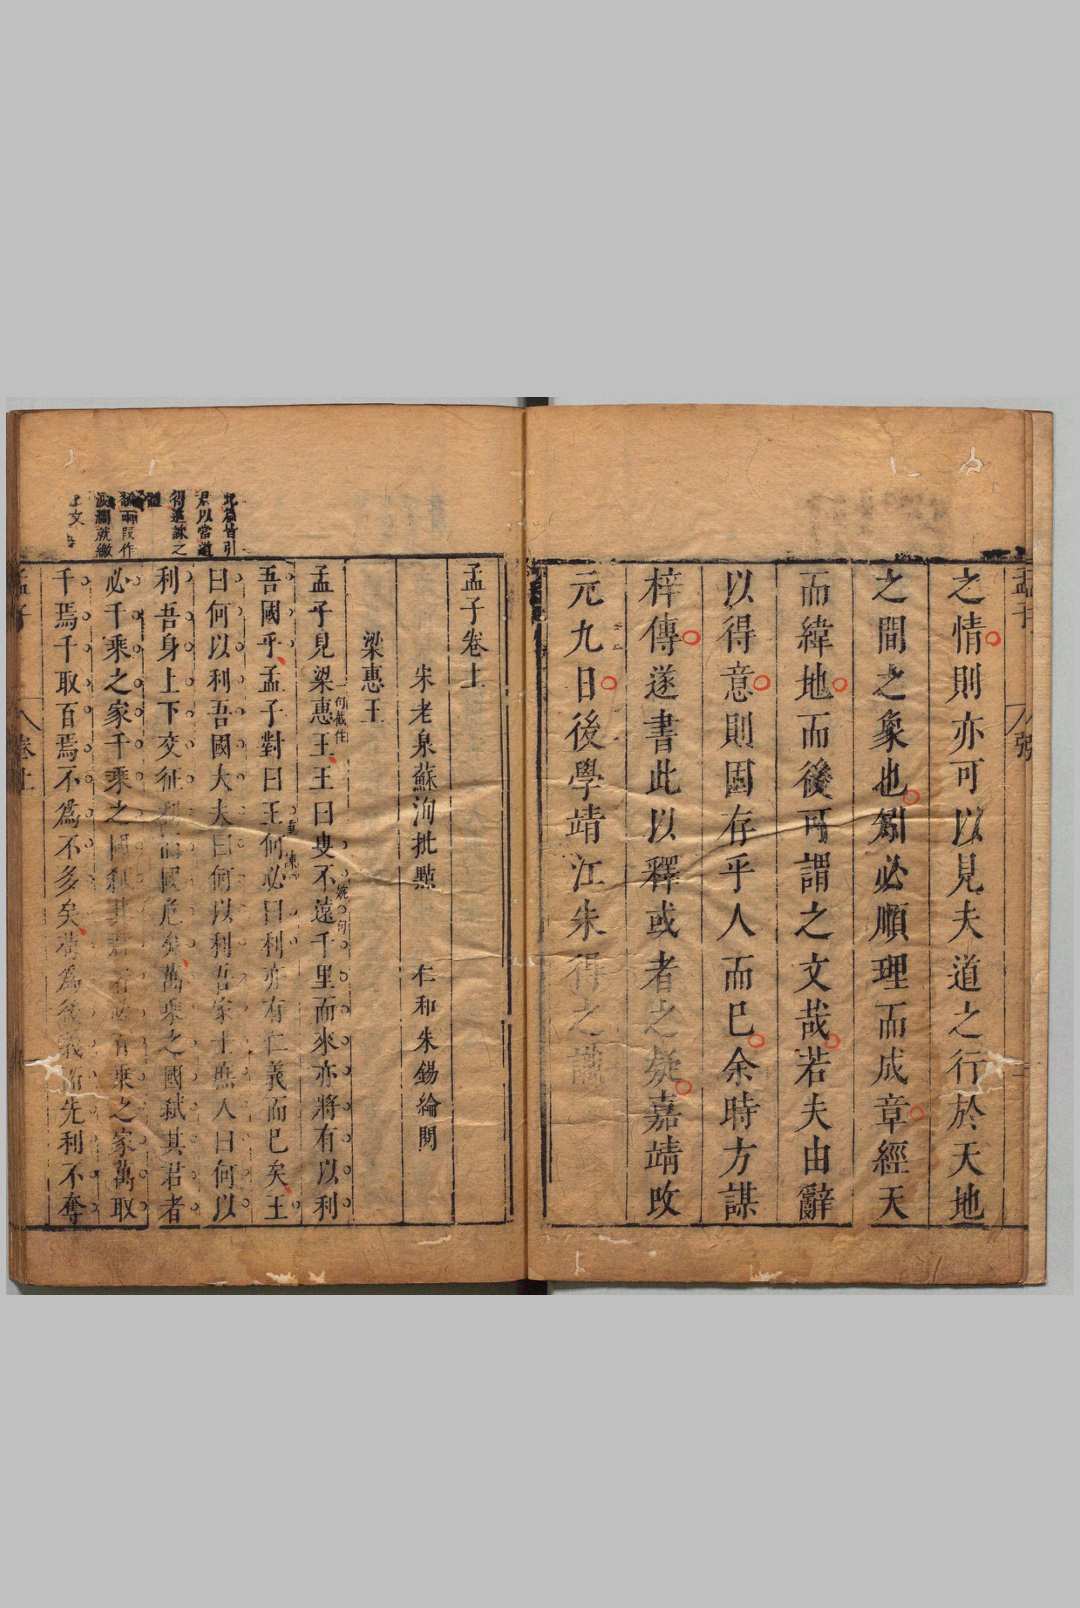 之情則亦可以見夫道之行於天地
之間之象也矧必順理而成章經天
而緯地而後可謂之文哉若夫由辭
以得意則固存乎人而已余時方謀
梓傳遂書此以釋或者之疑嘉靖改
元九日後學靖江朱得之
孟子卷上
朱老泉蘇洵批點 仁和朱錫綸閱
梁惠王
孟子見梁惠王王曰叟不遠千里而來亦將有以利
吾國乎孟子對曰王何必曰利亦有仁義而已矣王
曰何以利吾國大夫曰何以利吾家士庶人曰何以
利吾身上下交征利而國危矣萬乘之國弒其君者
必千乘之家千乘之國弒其君者必百乘之家萬取
千焉千取百焉不為不多矣苟為後義而先利不奪
孟子 卷上
此篇皆引
君以當道
得進諫之
體
兩段作
波瀾就繳
上文